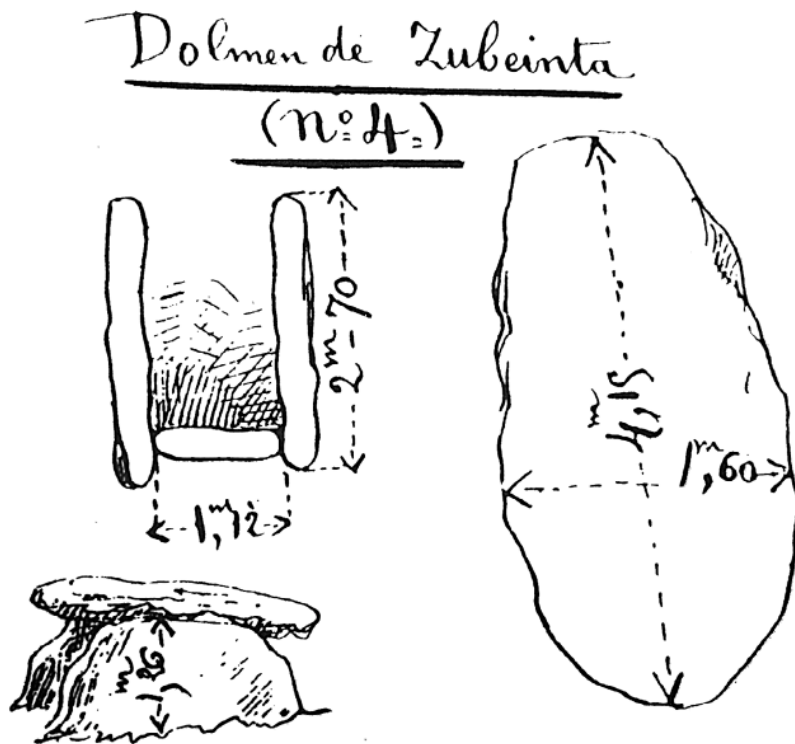 Dolmen de Zubeinta
(Nº 4.)
2m-70
4m,15
1m,60
1m,12